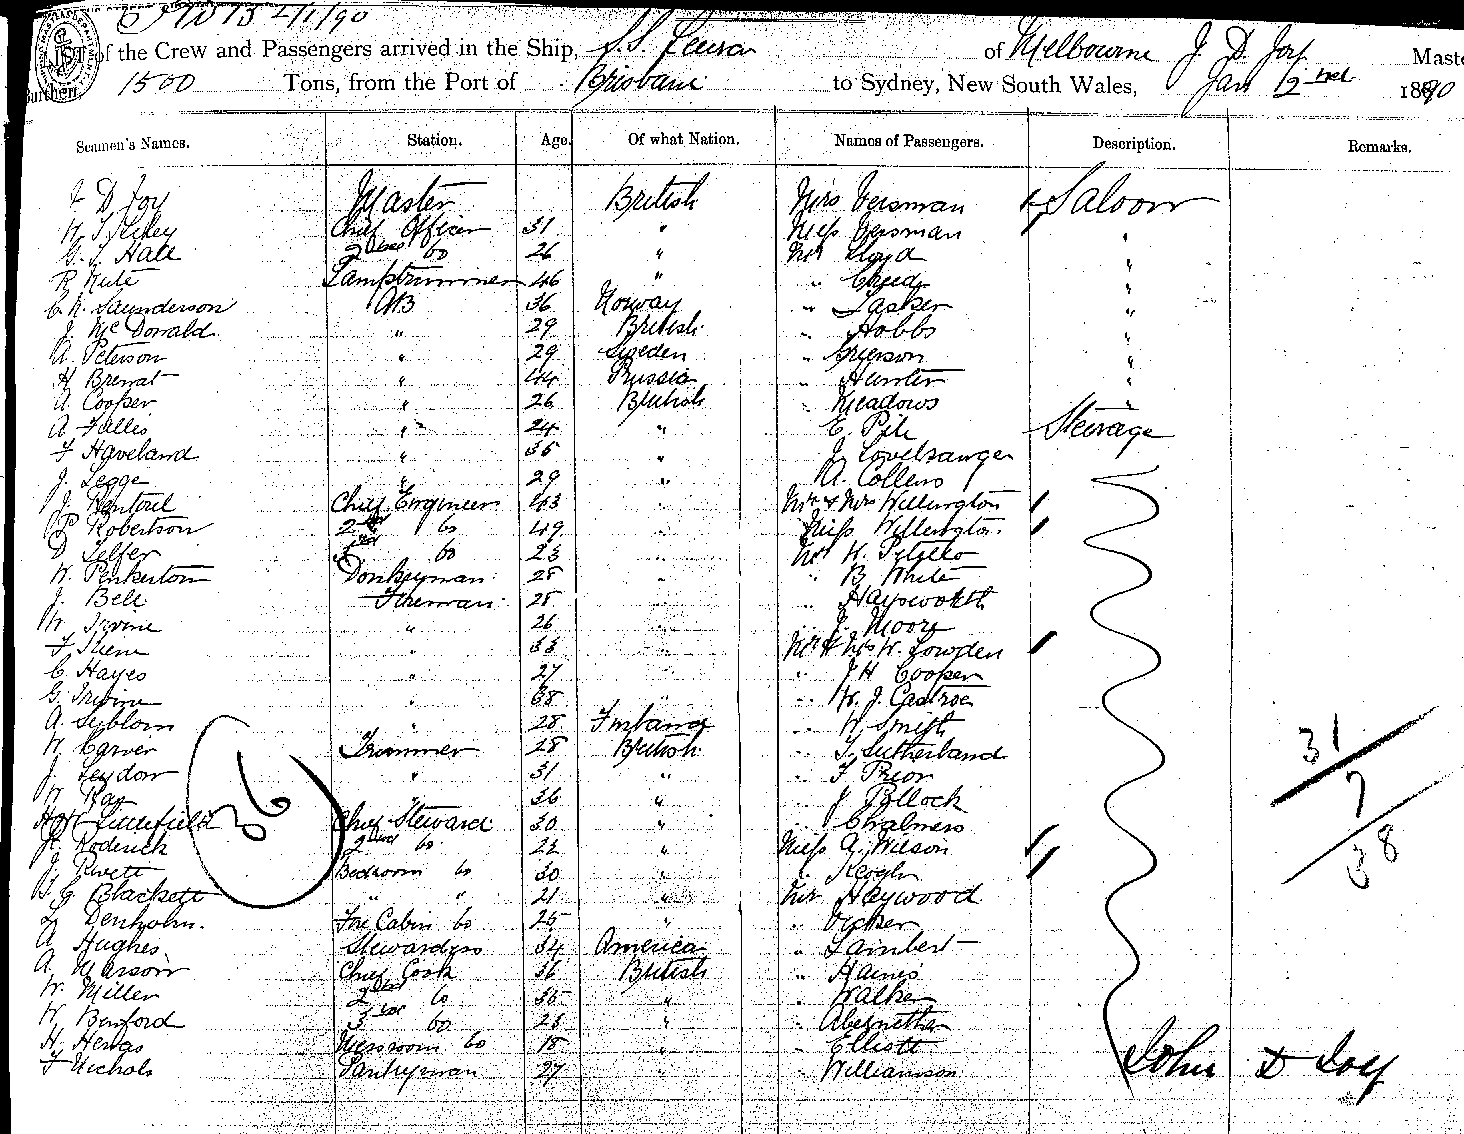 2/1/90
LIST of the Crew and Passengers arrived in the Ship, S.S. of Melbourne J. D. Joy Maste
Burthen, 1500 Tons, from the Port of Brisbane to Sydney, New South Wales, Jan 2nd 1890
Seamen's Names. Station. Age. Of what Nation. Names of Passengers. Description. Remarks.
J D Joy Master British Mrs Versman Saloon
Chief Officer 31 " Miss Versman "
G. J. Hale 2nd Do 26 " Mr Lloyd "
R Nute Lamptrimmer 46 " " Creed "
C. N. Saunderson AB 36 Norway " Lasker "
J. McDonald " 29 British " Hobbs "
A. Peterson " 29 Sweden " Grierson "
H Brenat " 44 Prussia " Hunter "
A. Cooper " 26 British " Meadows "
A Falles " 24 " E Pile Steerage
F Haveland " 35 "
J. Legge " 29 " A. Collens
J. Chief Engineer 43 " Mr & Mrs Willington
Robertson 2nd Do 49 " Miss Willington
D Telfer 3rd Do 23 " Mr W.
W. Pinkerton Donkeyman 28 " " B White
J. Bell Fireman 28 " " Haysworth
W. Irvine " 26 " " J. Moore
F " 33 " Mr & Mrs W. Lowden
C. Hayes " 27 " " J H Cooper
G. Irvine " 38 " " W. J. Castroe
A. Seblom " 28 Finland " W Smith
W Carver Trimmer 28 British " J. Sutherland
J. Leydon " 31 " " F Prior
W Ray " 36 " " J Pollock
Littlefield Chief Steward 30 " " Chalmers
Roderick 2nd Do 22 " Miss A. Wilson
J. Rivett Bedroom Do 30 " " Keogh
Blackett " " 21 " Mr Haywood
L. Denholm. Fore Cabin Do 25 " " Vicker
A Hughes Stewardess 34 America " Lambert
A. Marson Chief Cook 36 British " Haines
W. Miller 2nd Do 35 " " Walker
W Benford 3rd Do 23 " " Abernethen
H. Messroom Do 18 " " Elliott
F Nichols Pantryman 27 " " Williamson
36
31
7
38
John D Joy